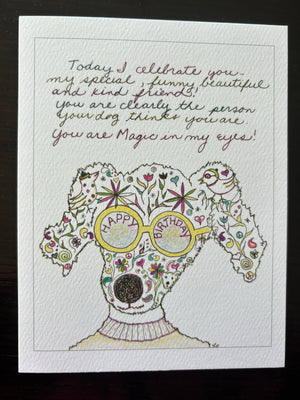 Today I celebrate you
my special, funny, beautiful
and kind friend!
you are clearly the person
your dog thinks you are.
You are Magic in my eyes!
HAPPY BIRTHDAY